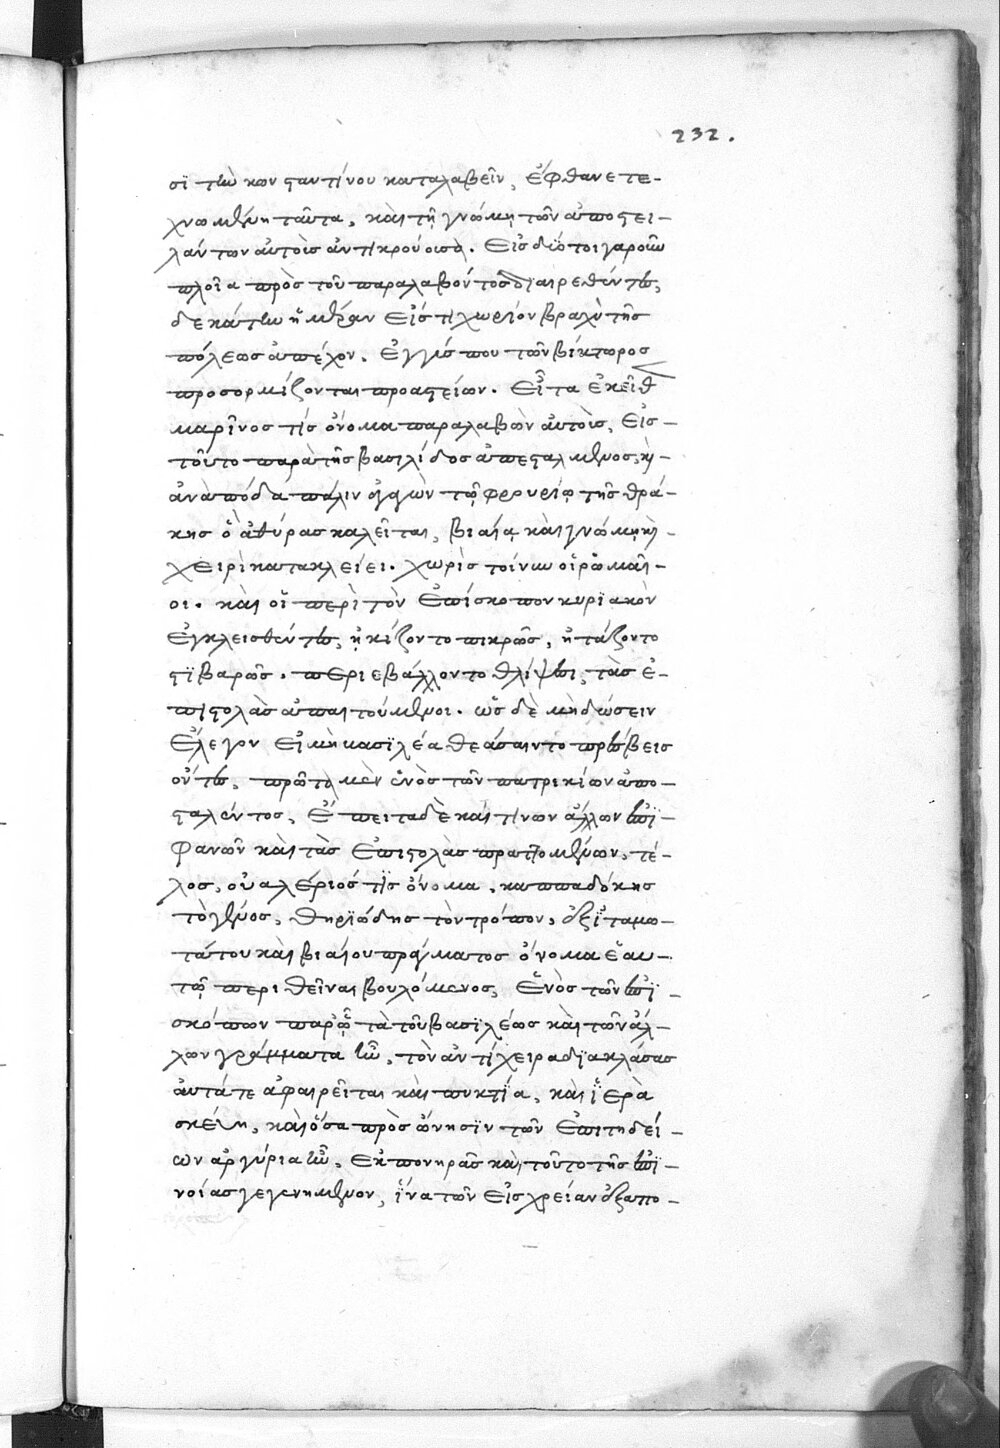 232.
σϊ τὴν κωνσταντίνου καταλαβεῖν, ἔφθανε τε-
χνωμένη ταῦτα, καὶ τῇ γνώμῃ τῶν ἀποστει-
λάντων αὐτοῖς ἀντικρούουσα. εἰς δύο τοιγαροῦν
πλοῖα πρὸς τοῦ παραλαβόντος διαιρεθέντες,
δεκάτην ἡμέραν εἴς τι χωρίον βραχὺ τῆς
πόλεως ἀπέχον. ἐγγύς που τῶν βίκτωρος
προσορμίζονται προαστείων. εἶτα ἐκεῖθεν
μαρῖνος τίς ὄνομα παραλαβὼν αὐτοῖς, εἰς
τοῦτο παρὰ τῆς βασιλίδος ἀπεσταλμένος, καὶ
ἀνὰ πόδα πάλιν ἀγαγὼν τῷ φρουρίῳ τῆς θρά-
κης ὃ ἀθύρας καλεῖται, βιαίᾳ καὶ γνώμῃ καὶ
χειρὶ κατακλείει. χωρὶς τοίνυν οἱ ῥωμαῖ-
οι. καὶ οἱ περὶ τὸν ἐπίσκοπον κυριακὸν
ἐγκλεισθέντες, ᾐκίζοντο πικρῶς, ἠτάζοντο
στιβαρῶς. περιεβάλλοντο θλίψει, τὰς ἐ-
πιστολὰς ἀπαιτούμενοι. ὡς δὲ μὴ δώσειν
ἔλεγον εἰ μὴ βασιλέα θεάσαιντο πρέσβεις
ὄντες, πρῶτα μὲν ἑνὸς τῶν πατρικίων ἀπο-
σταλέντος, ἔπειτα δὲ καί τινων ἄλλων ἐπι-
φανῶν καὶ τὰς ἐπιστολὰς πραττομένων, τέ-
λος, οὐαλέριός τις ὄνομα, καππαδόκης
τὸ γένος, θηριώδης τὸν τρόπον, ἐξ ἰταμω-
τάτου καὶ βιαίου πράγματος ὄνομα ἑαυ-
τῷ περιθεῖναι βουλόμενος, ἑνὸς τῶν ἐπι-
σκόπων παρ' ᾧ τὰ τοῦ βασιλέως καὶ τῶν ἄλ-
λων γράμματα ἦν, τὸν ἀντίχειρα διακλάσας
αὐτά τε ἀφαιρεῖται καὶ πυκτία, καὶ ἱερὰ
σκεύη, καὶ ὅσα πρὸς ὤνησιν τῶν ἐπιτηδεί-
ων ἀργύρια ἦν. ἐκ πονηρᾶς καὶ τοῦτο τῆς ἐπι-
νοίας γεγενημένον, ἵνα τῶν εἰς χρείαν ἐξαπο-